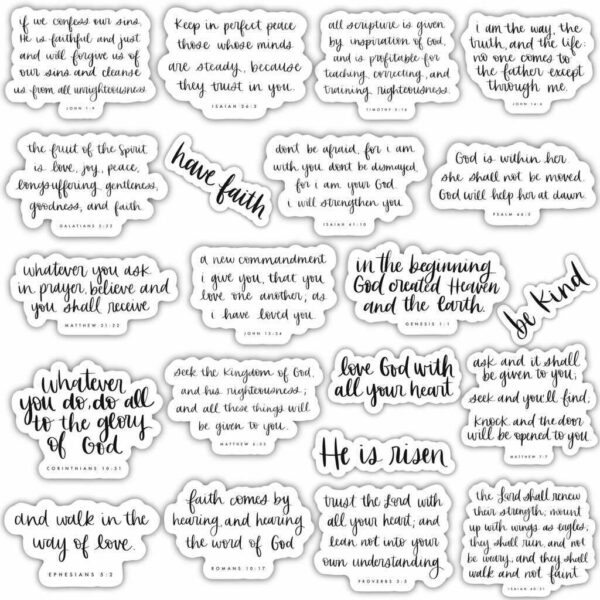 if we confess our sins,
He is faithful and just
and will forgive us of
our sins and cleanse
us from all unrighteousness.
JOHN 1:9
Keep in perfect peace
those whose minds
are steady, because
they trust in you.
ISAIAH 26:3
all scripture is given
by inspiration of God,
and is profitable for
teaching, correcting, and
training righteousness.
TIMOTHY 3:16
i am the way, the
truth, and the life:
no one comes to
the father except
through me.
JOHN 14:6
the fruit of the Spirit
is love, joy, peace,
longsuffering, gentleness,
goodness, and faith.
GALATIANS 5:22
have faith
don't be afraid, for i am
with you don't be dismayed,
for i am your God.
i will strengthen you.
ISAIAH 41:10
God is within her
she shall not be moved.
God will help her at dawn.
PSALM 46:5
whatever you ask
in prayer, believe and
you shall receive
MATTHEW 21:22
a new commandment
i give you, that you
love one another, as
i have loved you.
JOHN 13:34
in the beginning
God created Heaven
and the Earth.
GENESIS 1:1
be kind
whatever
you do, do all
to the glory
of God
CORINTHIANS 10:31
seek the kingdom of God,
and his righteousness;
and all these things will
be given to you.
MATTHEW 6:33
love God with
all your heart
He is risen
ask and it shall
be given to you;
seek and you'll find;
knock and the door
will be opened to you
MATTHEW 7:7
and walk in the
way of love.
EPHESIANS 5:2
faith comes by
hearing, and hearing
the word of God
ROMANS 10:17
trust the Lord with
all your heart; and
lean not into your
own understanding.
PROVERBS 3:5
the Lord shall renew
their strength; mount
up with wings as eagles;
they shall run, and not
be weary, and they shall
walk and not faint
ISAIAH 40:31